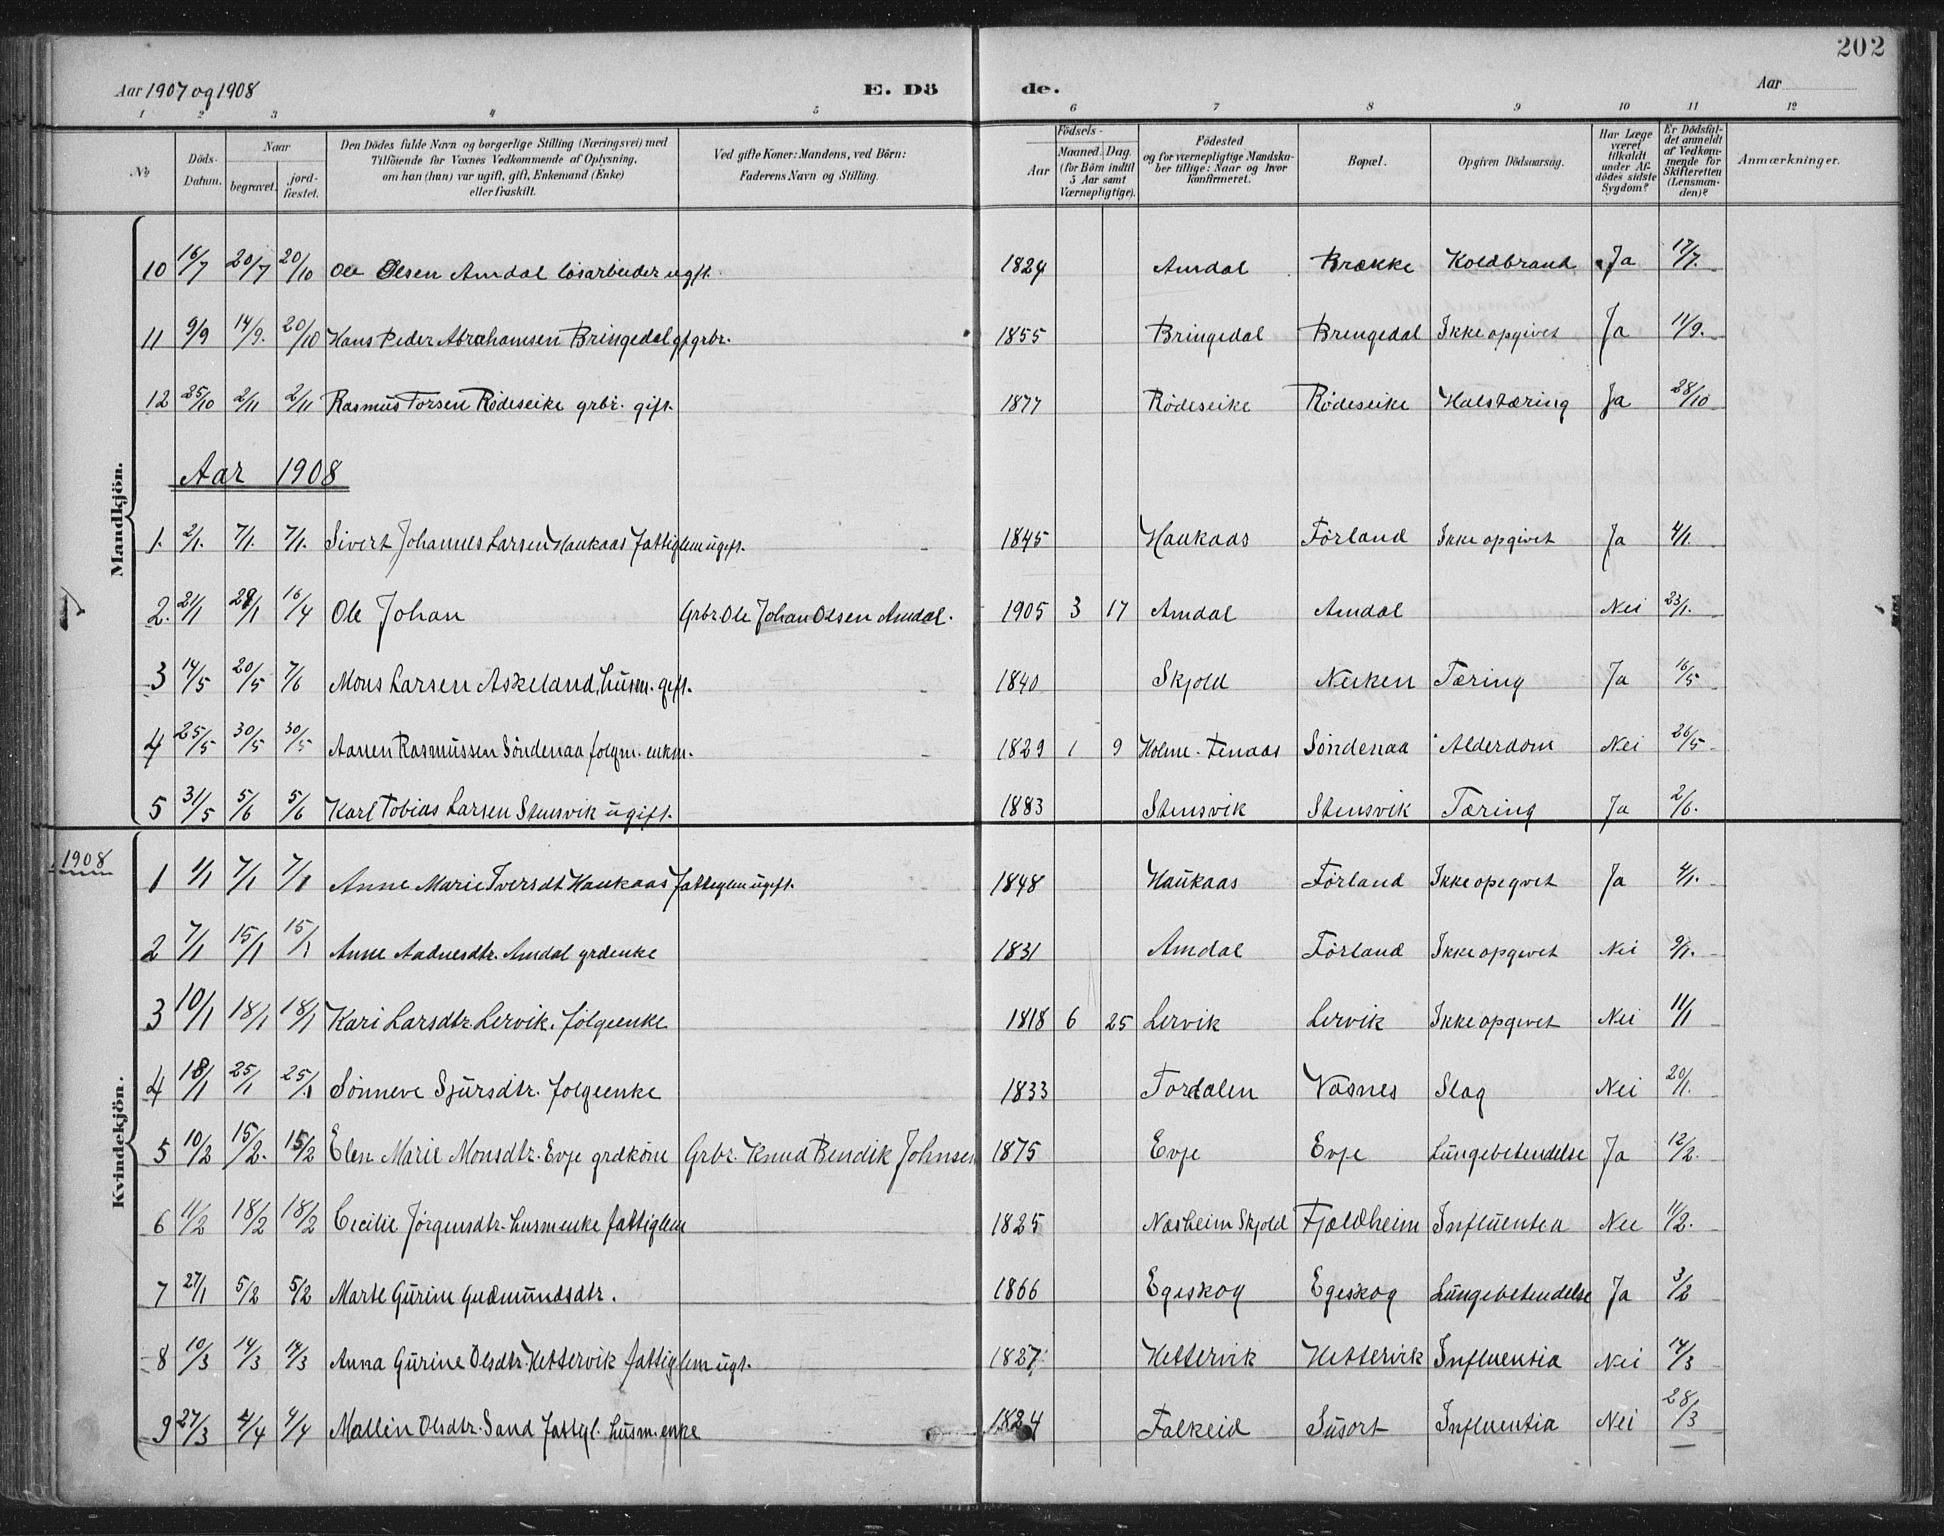 202
Aar 1907 og 1908 E. Dö de. Aar
1 2 3 4 5 6 7 8 9 10 11 12
№ Döds-Datum. Naar begravet. jordfæstet. Den Dödes fulde Navn og borgerlige Stilling (Næringsvei) med Tilföiende for Voxnes Vedkommende af Oplysning, om han (hun) var ugift, gift, Enkemand (Enke) eller fraskilt. Ved gifte Koner: Mandens, ved Börn: Faderens Navn og Stilling. Födsels- Aar Maaned. Dag. (for Börn indtil 5 Aar samt Værnepligtige). Födested og for værnepligtige Mandskaber tillige: Naar og hvor Konfirmeret. Bopæl. Opgiven Dödsaarsag. Har Læge været tilkaldt under Afdödes sidste Sygdom? Er Dödsfaldet anmeldt af Vedkommende for Skifteretten (Lensmanden)? Anmærkninger.
Mandkjön.
10 16/7 20/7 20/10 Ole Olsen Amdal løsarbeider ugft. 1824 Amdal Brække Koldbrand Ja 17/7.
11 9/9 14/9. 20/10 Hans Peder Abrahamsen Bringedal gf grbr. 1855 Bringedal Bringedal Ikke opgivet Ja 11/9.
12 25/10 2/11 2/11 Rasmus Torsen Rödeseike grbr. gift. 1877 Rödeseike Rödeseike Halstæring Ja 28/10
Aar 1908
1. 2/1. 7/1. 7/1. Sivert Johannes Larsen Haukaas fattiglem ugift. 1845 Haukaas Förland Ikke opgivet Ja 4/1.
2. 21/1 28/1 16/4 Ole Johan Grbr. Ole Johan Olsen Amdal. 1905 3 17 Amdal Amdal Nei 23/1.
3 14/5 20/5 7/6 Mons Larsen Askeland, husm. gift. 1840 Skjold Nerken Tæring Ja 16/5
4 25/5 30/5 30/5 Aanen Rasmussen Söndenaa folgm. enkm. 1829 1 9 Holme- Söndenaa Alderdom Nei 26/5
5 31/5 5/6 5/6 Karl Tobias Larsen Stensvik ugift. 1883 Stensvik Stensvik Tæring Ja 2/6.
1908
Kvindekjön.
1 1/1 7/1 7/1 Anne Marie Iversdt Haukaas fattiglem ugift. 1848 Haukaas Förland Ikke opgivet Ja 4/1.
2 7/1 15/1 15/1 Anne Aadnesdtr. Amdal grdenke 1831 Amdal Förland Ikke opgivet Nei 9/1.
3 10/1 18/1 18/1 Kari Larsdtr. Lervik. følgeenke 1818 6 25 Lervik Lervik Ikke opgivet Nei 11/1
4 18/1 25/1 25/1 Sönneve Sjursdtr. folgeenke 1833 Tordalen Vasnes Slag Nei 20/1.
5 10/2 15/2. 15/2 Elen Marie Monsdtr. Evje grdkone Grbr. Knud Bendik Johnsen 1875 Evje Evje Lungebetendelse Ja 12/2.
6 11/2 18/2 18/2 Cecilie Jörgensdtr. husmenke fattiglem 1825 Næsheim Skjold Fjeldheim Influentia Nei 11/2.
7 27/1 5/2 5/2 Marte Gurine Gudmundsdtr. 1866 Egeskog Egeskog Lungebetendelse Ja 3/2
8 10/3 14/3 14/3 Anna Gurine Olsdtr. Hettervik fattiglem ugt. 1827 Hettervik Hettervik Influentia Nei 14/3
9 27/3 4/4 4/4 Mallin Olsdtr. Sand fattgl. husm. enke 1824 Falkeid Susort Influentia Nei 28/3